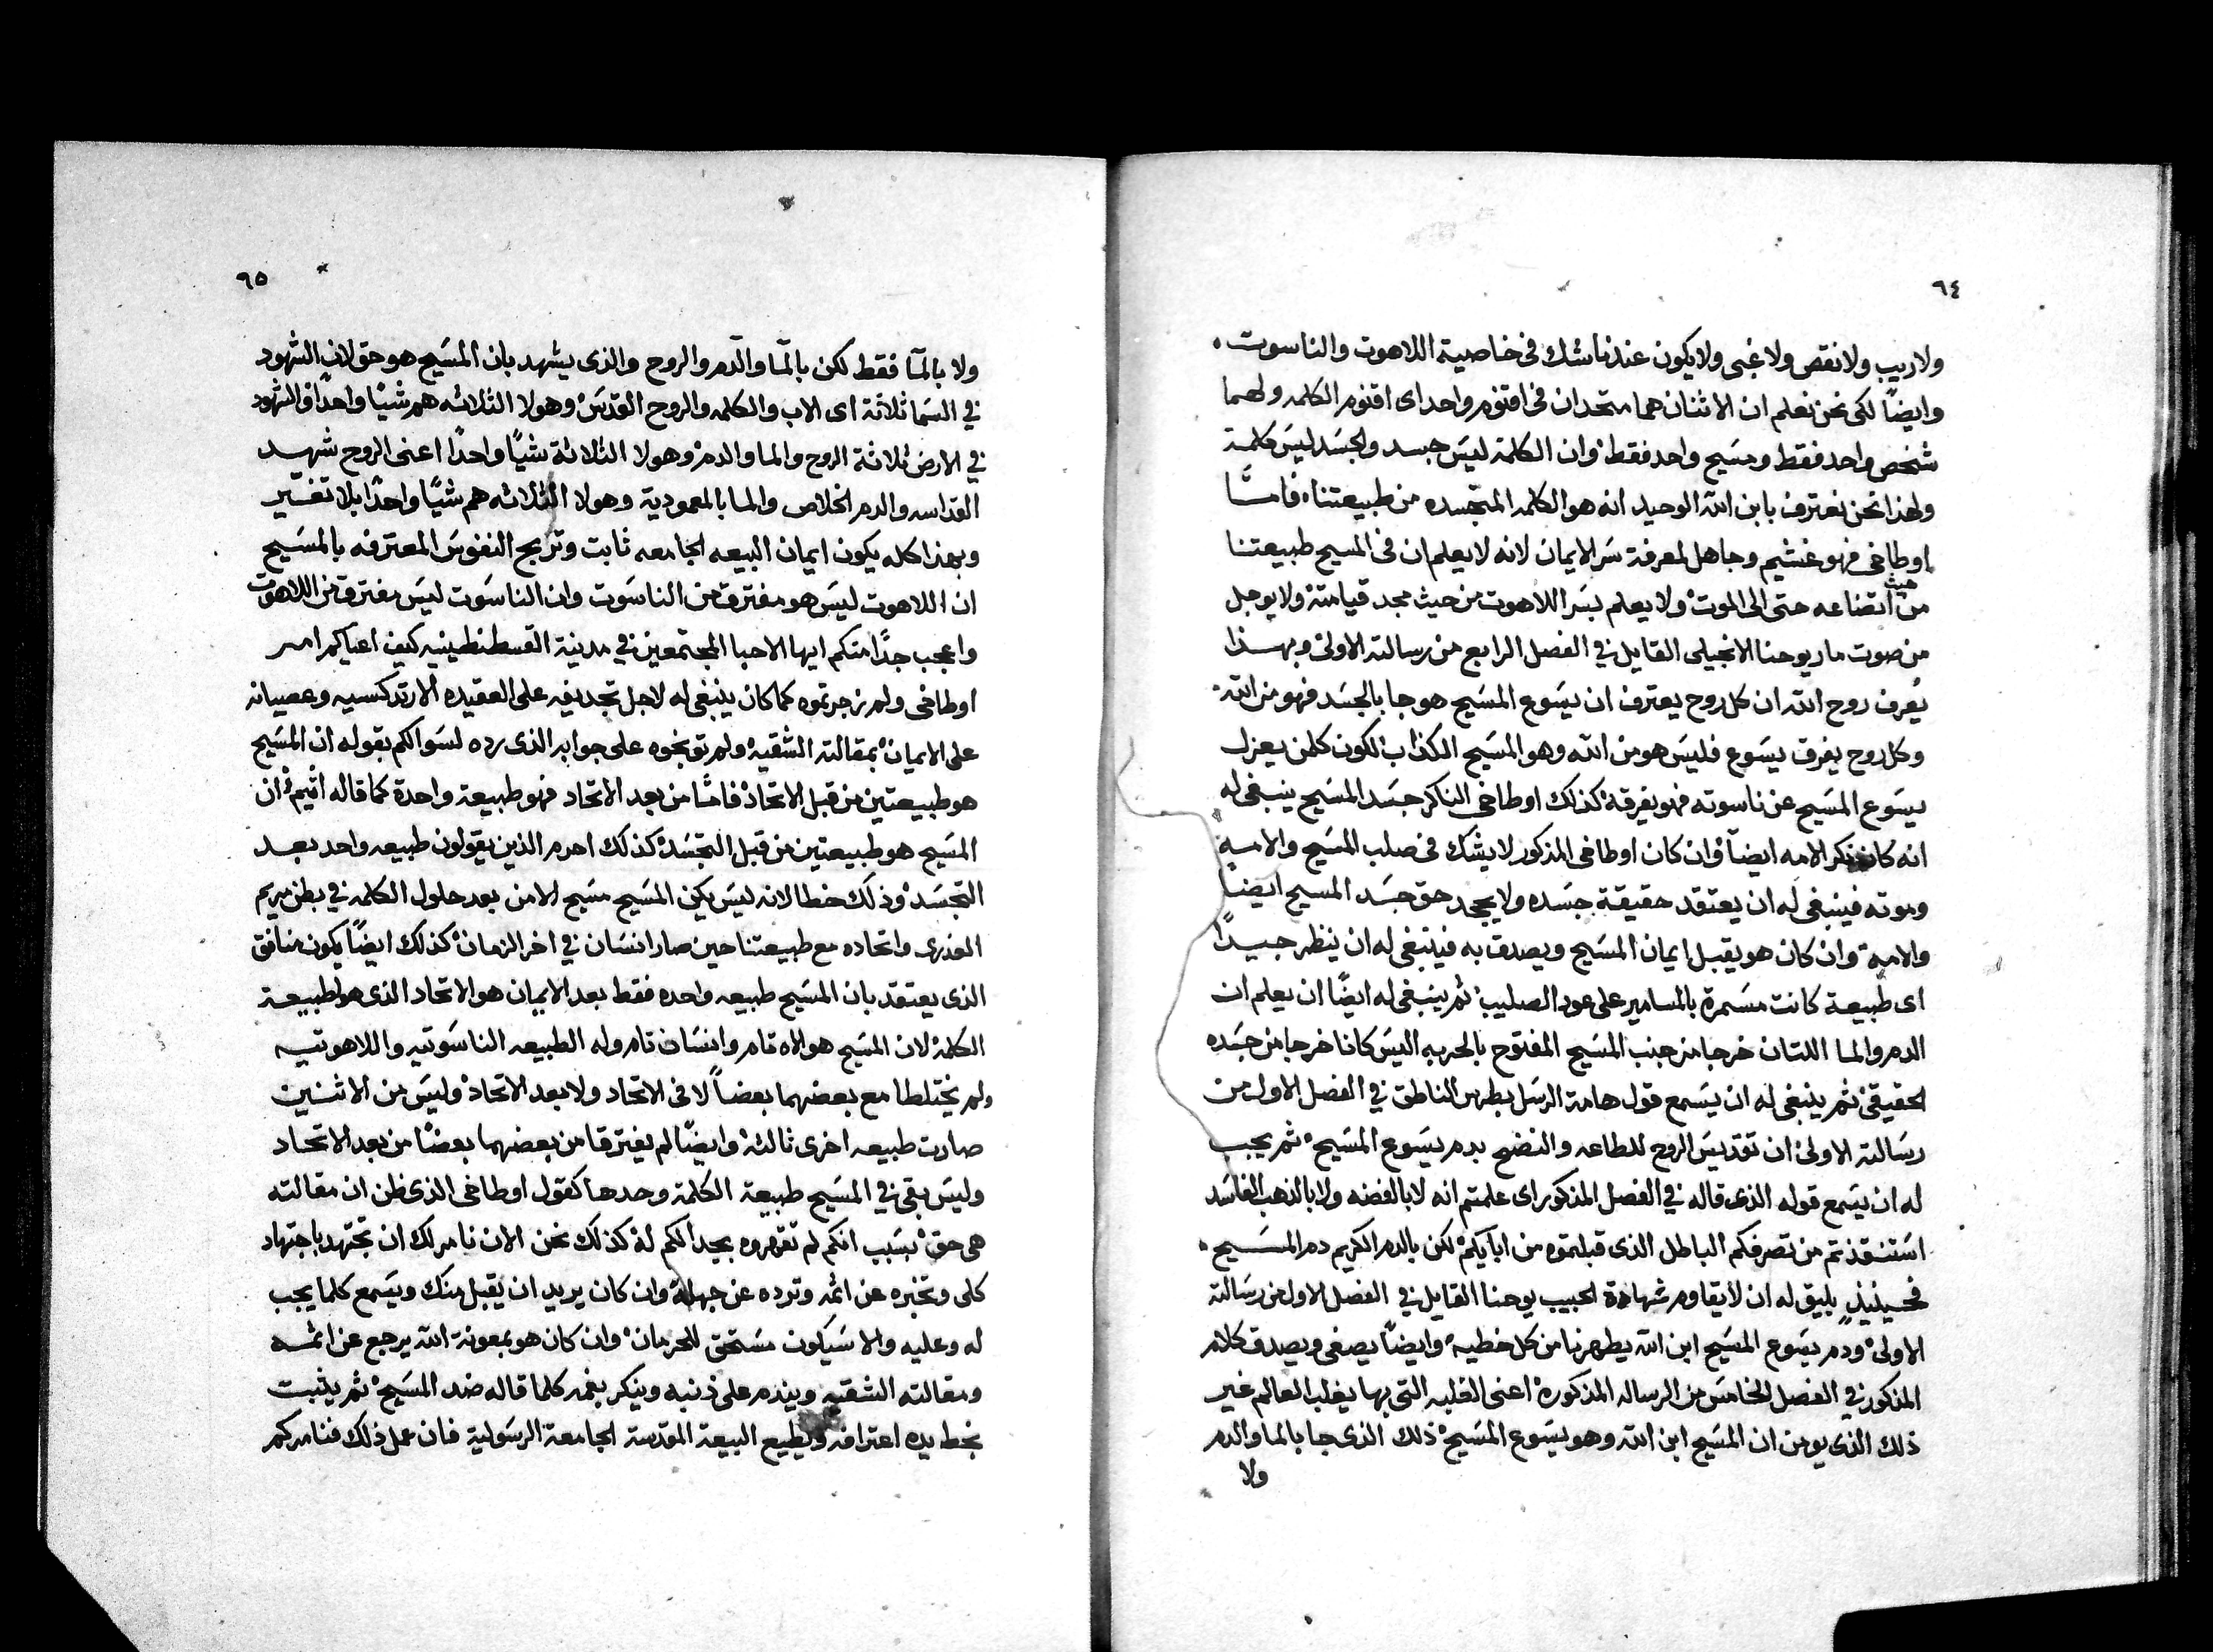 ٦٤
ولا ريب ولا نقص ولا غبى ولا يكون عندنا شك فى خاصية اللاهوت والناسوت.
وايضًا لكى نحن نعلم ان الاثنان هما متحدان فى اقنوم واحد اى اقنوم الكلمه ولهما
شخص واحد فقط ومسيح واحد فقط وان الكلمة ليس جسد والجسد ليس كلمة
ولهذا نحن نعترف بابن الله الوحيد انه هو الكلمه المتجسده من طبيعتنا فامـّا
اوطاخى فهو غشيم وجاهل لمعرفة سر الايمان لانه لا يعلم ان فى المسيح طبيعتنا
من حيث اتضاعه حتى الى الموت ولا يعلم بسر اللاهوت من حيث مجد قيامته ولا يوجل
من صوت مار يوحنا الانجيلى القايل في الفصل الرابع من رسالته الاولى وبهـذا
يُعرف روح الله ان كل روح يعترف ان يسوع المسيح هو جا بالجسد فهو من الله.
وكل روح يفرق يسوع فليس هو من الله وهو المسيح الكذاب لكون كلمن يعزل
يسوع المسيح عن ناسوته فهو يفرقه كذلك اوطاخى الناكر جسد المسيح ينبغى له
انه كان ينكر الامه ايضاً وان كان اوطاخى المذكور لا يشك فى صلب المسيح والامه
وموته فينبغى له ان يعتقد حقيقة جسده ولا يجحد حق جسد المسيح ايضاً
والامه وان كان هو يقبل ايمان المسيح ويصدق به فينبغى له ان ينظر جيـدًا
اى طبيعة كانت مسمرة بالمسامير على عود الصليب ثم ينبغى له ايضًا ان يعلم ان
الدم والما اللتان خرجا من جنب المسيح المفتوح بالحربه اليس كانا خرجا من جسده
الحقيقى ثم ينبغى له ان يسمع قول هامة الرسل بطرس الناطق في الفصل الاول من
رسالته الاولى ان تقديس الروح للطاعه والنضح بدم يسوع المسيح ثم يجب
له ان يسمع قوله الذى قاله في الفصل المذكور اى علمتم انه لا بالفضه ولا بالذهب الفاسد
استنقذتم من تصرفكم الباطل الذى قبلتموه من اباَيكم لكن بالدم الكريم دم المسيح.
فحينيذٍ يليق له ان لا يقاوم شهادة الحبيب يوحنا القايل في الفصل الاول من رسالته
الاولى ودم يسوع المسيح ابن الله يطهرنا من كل خطيه وايضاً يصغى ويصدق كلام
المذكور في الفصل الخامس من الرساله المذكوره اعنى الغلبه التى بها يغلب العالم غير
ذلك الذى يومن ان المسيح ابن الله وهو يسوع المسيح ذلك الذى جا بالما والدم
ولا
٦٥
ولا بالمآ فقط لكن بالمآ والدم والروح والذى يشهد بان المسيح هو حق لان الشهود
في السما ثلاثة اى الاب والكلمه والروح القدس وهولا الثلاثه هم شيًا واحدًا والشهود
في الارض ثلاثة الروح والما والدم وهولا الثلاثة شيًا واحدًا اعنى الروح شهـيد
القداسه والدم الخلاص والما بالمعمودية وهولا الثلاثه هم شيًا واحدًا بلا تغيّير
وبهذا كله يكون ايمان البيعه الجامعه ثابت وتربح النفوس المعترفه بالمسيح
ان اللاهوت ليس هو مفترق من الناسوت وان الناسوت ليس مفترق من اللاهوت
واعجب جدًا منكم ايها الاحبا المجتمعين في مدينة القسطنطينيه كيف اعياكم امر
اوطاخى ولم زجرتموه كما كان ينبغى له لاجل تجديفه على العقيده الارتدكسيه وعصيانه
على الايمان بمقالته الشقيه ولم توبخوه على جوابه الذى رده لسوالكم بقوله ان المسيح
هو طبيعتين من قبل الاتحاد فامّا من بعد الاتحاد فهو طبيعة واحدة كما قاله اثيم ان
المسيح هو طبيعتين من قبل التجسد كذلك احرم الذين يقولون طبيعه واحد بعـد
التجسد وذلك خطا لانه ليس يكن المسيح مسيح الا من بعد حلول الكلمه في بطن مريم
العذرى واتحاده مع طبيعتنا حين صار انسان في اخر الزمان كذلك ايضًا يكون منافق
الذى يعتقد بان المسيح طبيعه واحده فقط بعد الايمان هو الاتحاد الذى هو لطبيعـة
الكلمة لان المسيح هو الاه تام وانسان تام وله الطبيعه الناسوتيه واللاهوتيه
ولم يختلطا مع بعضهما بعضاً لا فى الاتحاد ولا بعد الاتحاد وليس من الاثنـين
صارت طبيعه اخرى ثالثه وايضًا لم يفترقا من بعضهما بعضًا من بعد الاتحـاد
وليس بقى في المسيح طبيعة الكلمة وحدها كقول اوطاخى الذى ظن ان مقالته
هى حق بسبب انكم لم تقهروه بجدالكم له كذلك نحن الان نامرلك ان تجتهد باجتهاد
كلى وتخبره عن اثمه وترده عن جهله وان كان يريد ان يقبل منك ويسمع كلما يجب
له وعليه والا سيكون مستحق للحرمان وان كان هو بمعونة الله يرجع عن اثمـه
ومقالته الشقيه ويندم على ذنبه وينكر بفمه كلما قاله ضد المسيح ثم يثبت
بخط يده اعترافه ويطيع البيعة المقدسة الجامعة الرسولية فان عمل ذلك فنامركم